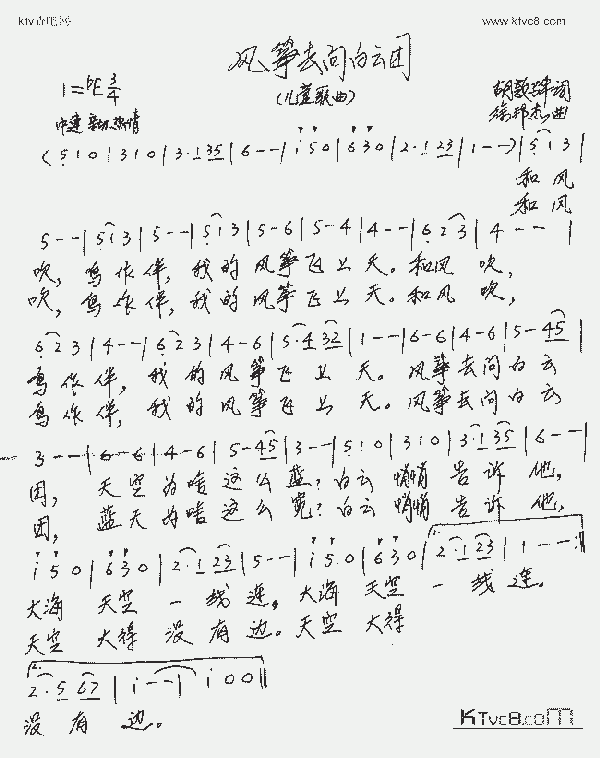 www.ktvc8.com
风筝去问白云团
(儿童歌曲)
1=bE 3/4
(5 1 0 | 3 1 0 | 3·1 35 | 6 - - | i 5 0 | 6 3 0 | 2·1 23 | 1 - -) | 5 1 3 |
和风
和风
5 - - | 5 1 3 | 5 - - | 5 1 3 | 5 - 6 | 5 - 4 | 4 - - | 6 2 3 | 4 - - |
吹,鸟作伴,我的风筝飞上天。和风吹,
吹,鸟作伴,我的风筝飞上天。和风吹,
6 2 3 | 4 - - | 6 2 3 | 4 - 6 | 5·4 32 | 1 - - | 6 - 6 | 4 - 6 | 5 - 45 |
鸟作伴,我的风筝飞上天。风筝去问白云
鸟作伴,我的风筝飞上天。风筝去问白云
3 - - | 6 - 6 | 4 - 6 | 5 - 45 | 3 - - | 5 1 0 | 3 1 0 | 3·1 35 | 6 - - |
团,天空为啥这么蓝?白云悄悄告诉他,
团,蓝天为啥这么宽?白云悄悄告诉他,
i 5 0 | 6 3 0 | 2·1 23 | 5 - - | i 5 0 | 6 3 0 | 2·1 23 | 1 - - :|
大海天空一线连,大海天空一线连。
天空大得没有边。天空大得
2.
2·5 67 | i - - | i 0 0 ||
没有边。
KTvc8.com